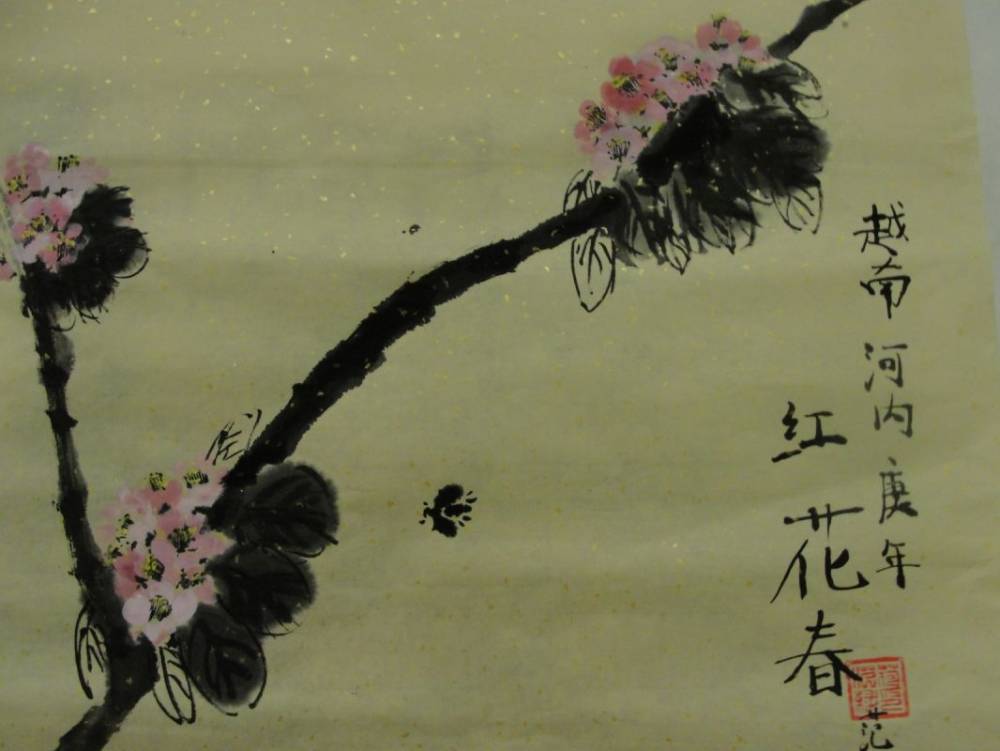 越南河内庚年
红花春
范